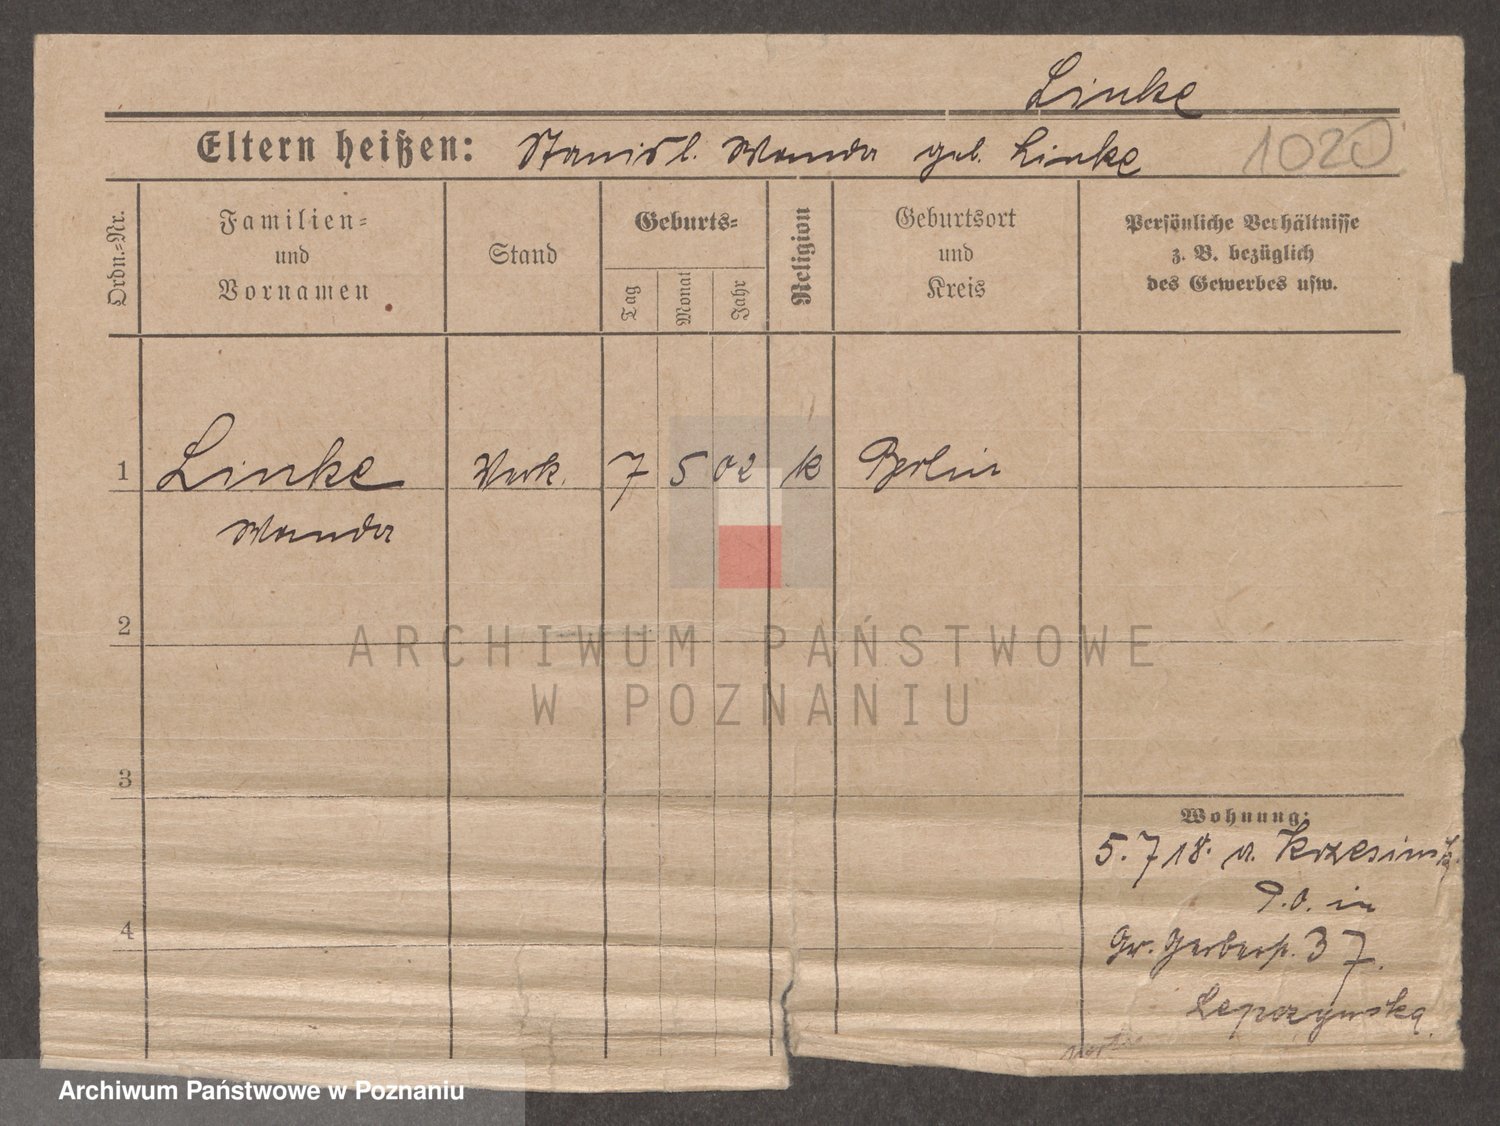 Linke
Eltern heißen: Stanisl. Wanda geb. Linke 1020
Ordn.-Nr.
Familien-
und
Vornamen
Stand
Geburts-
Tag
Monat
Jahr
Religion
Geburtsort
und
Kreis
Persönliche Verhältnisse
z. B. bezüglich
des Gewerbes usw.
1 Linke Verk. 7 5 02 k Berlin
Wanda
2
3
4
Wohnung:
5. 7 18. a. Krzesinski
P.O. in
Gr. Gerberst. 37.
Lepczynska
ARCHIWUM PAŃSTWOWE
W POZNANIU
Archiwum Państwowe w Poznaniu